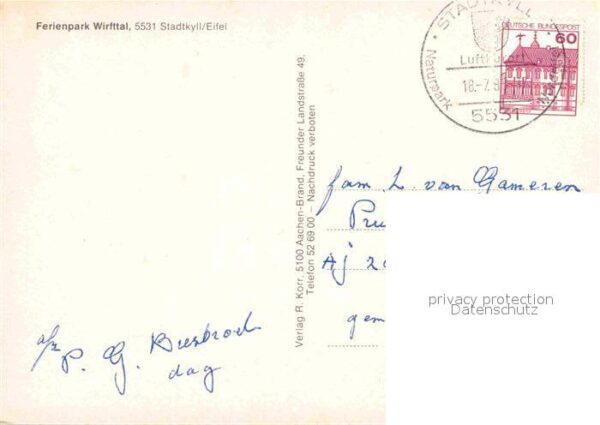 Ferienpark Wirfttal, 5531 Stadtkyll/Eifel
STADTKYLL
Naturpark
18.-7.8
5531
DEUTSCHE BUNDESPOST
60
Verlag R. Korr, 5100 Aachen-Brand, Freunder Landstraße 49,
Telefon 52 69 00 – Nachdruck verboten
fam. L. van Gameren
Pru
Aj 20
gem
privacy protection
Datenschutz
a/z P. G.
dag